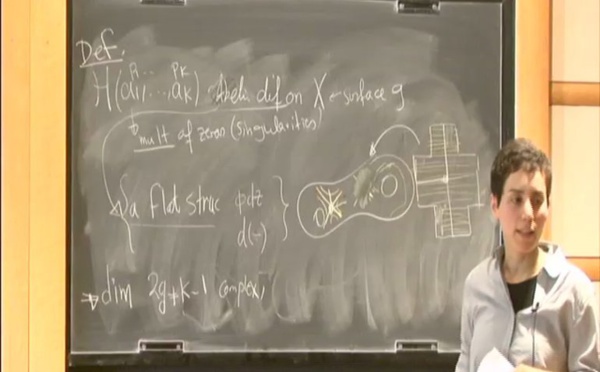 Def.
P₁ ... Pₖ
H(a₁, ... aₖ) dif on X surface g
mult of zeros (singularities)
a flat struc φdz
d(-)
dim 2g+k-1 complex